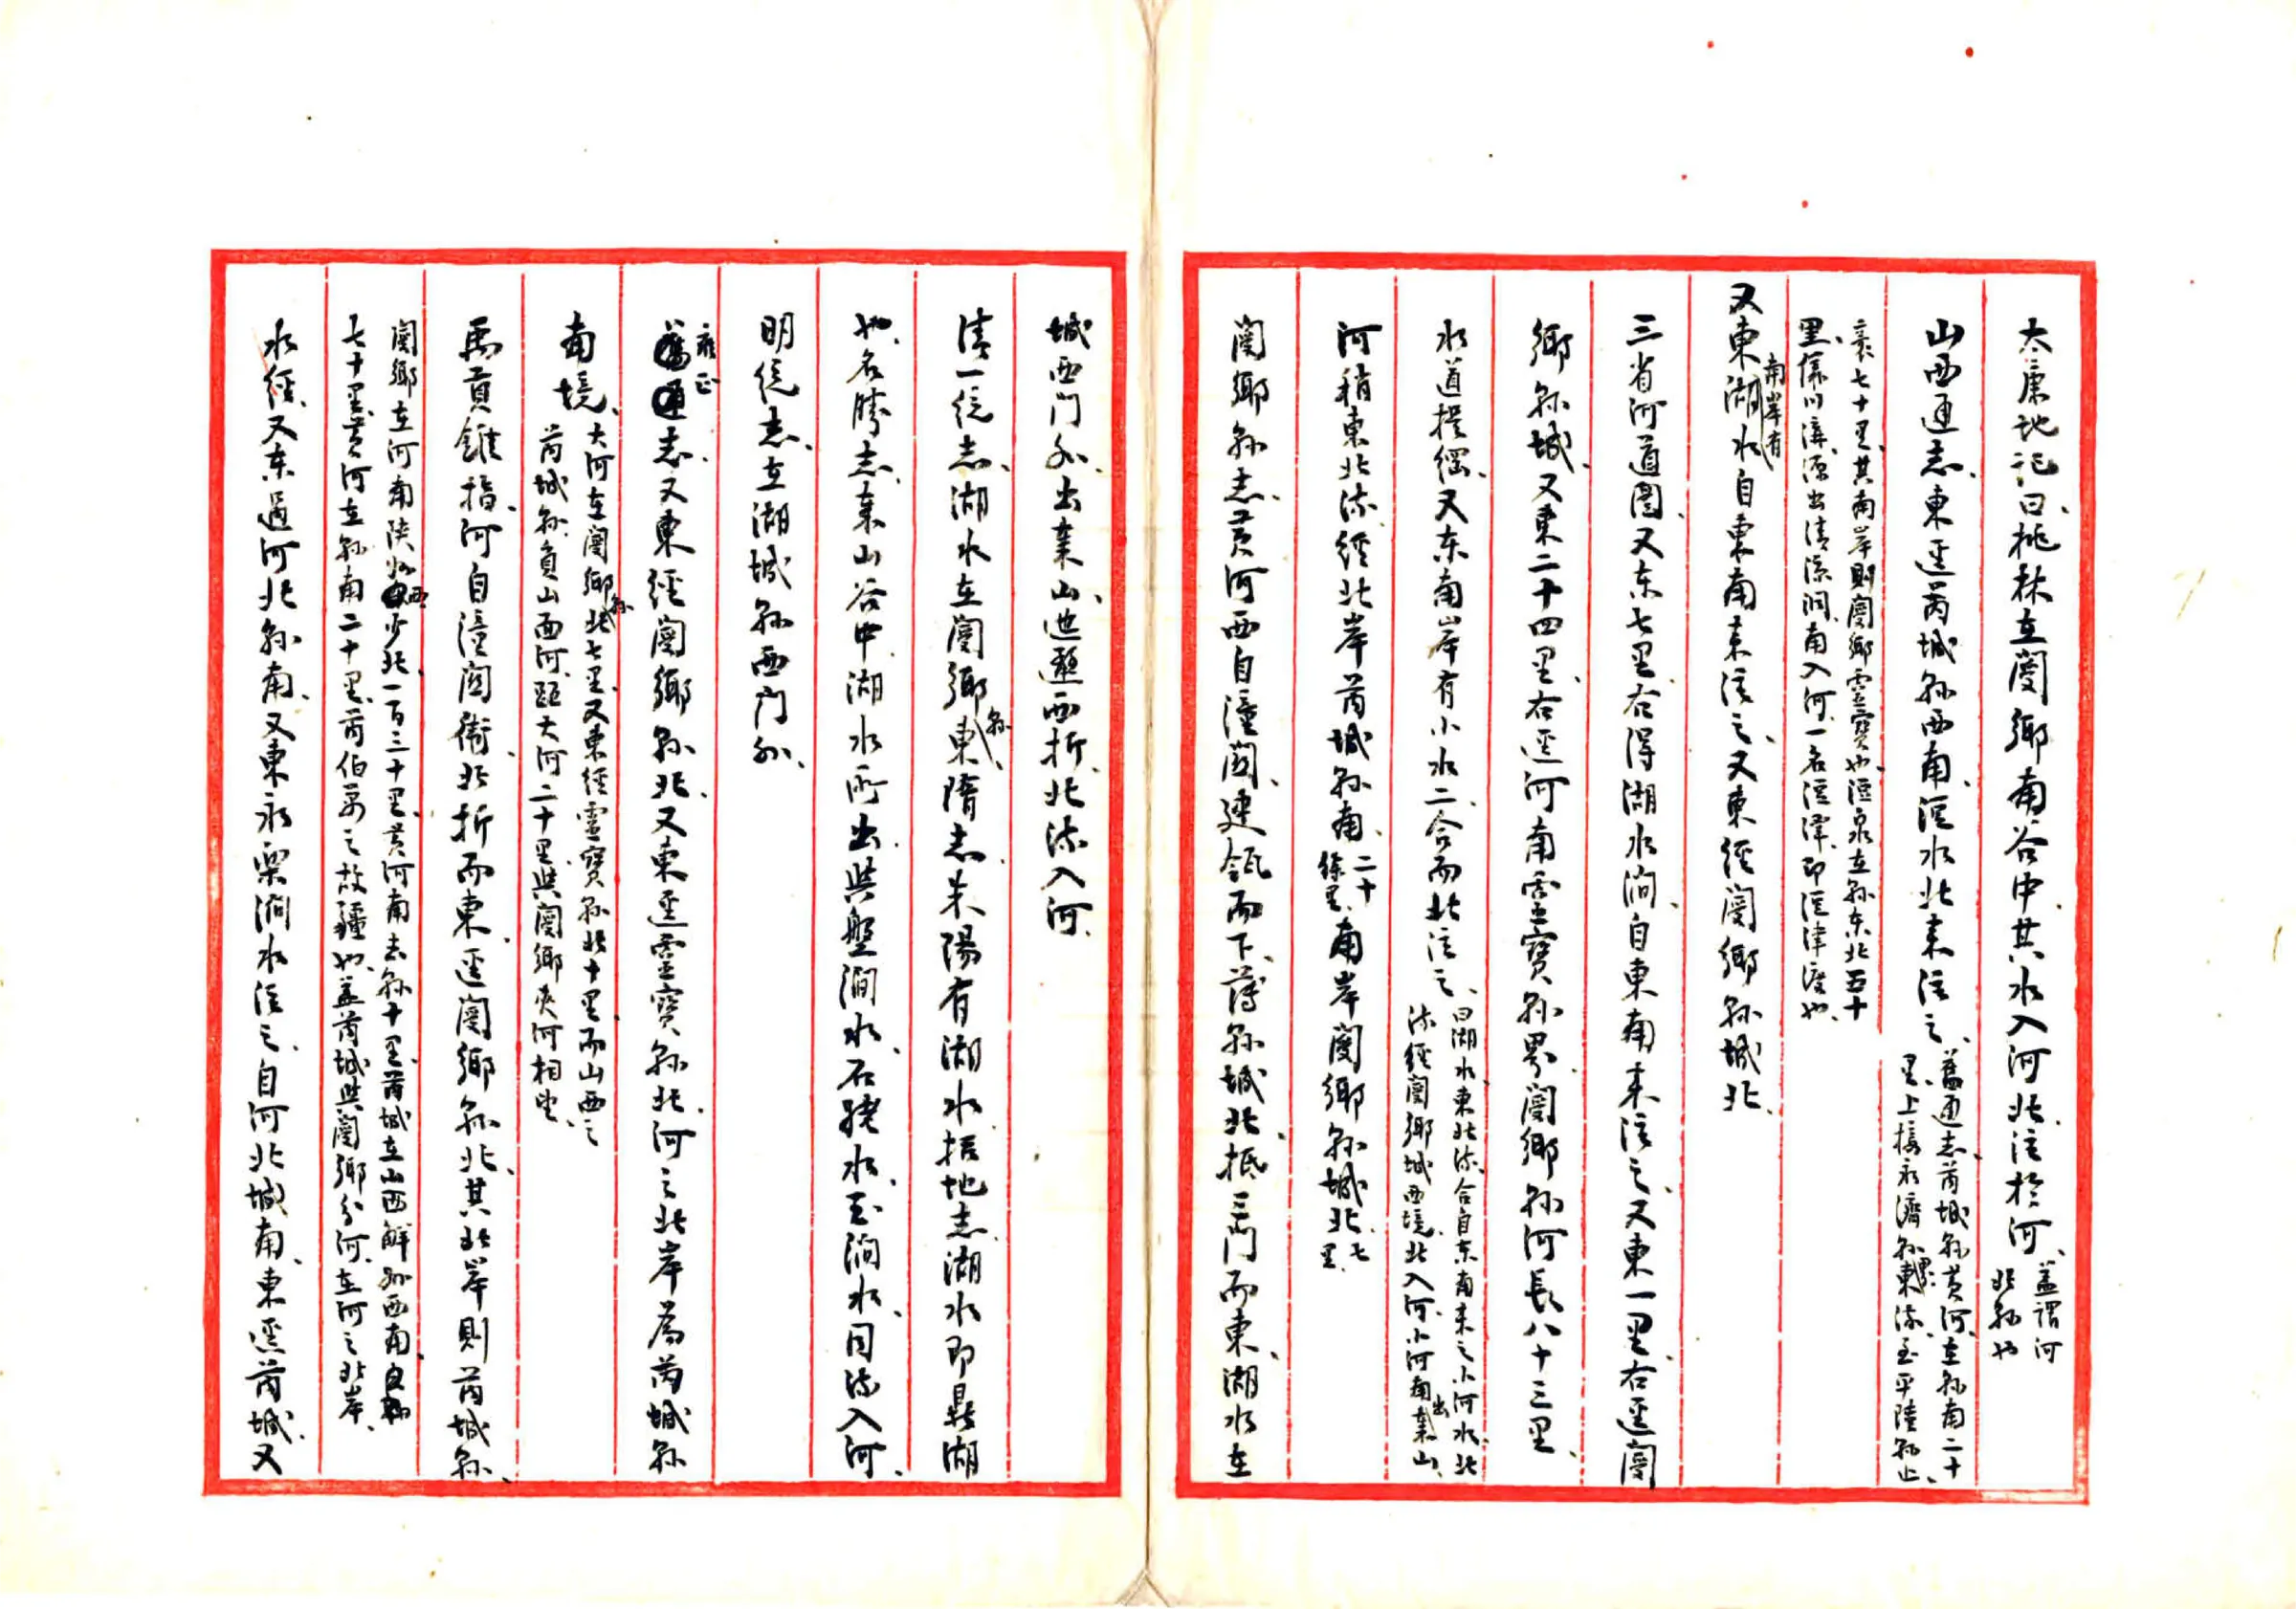 太康地记曰、桃林在閿鄉南谷中其水入河北注於河、盖谓河
北縣也
山西通志、東逕芮城縣西南、洰水北来注之、舊通志、芮城縣黄河、在縣南二十
里、上接永濟縣界、東流、至平陸縣止、
袤七十里、其南岸則閿鄉靈寶也、洰泉在縣东北五十
里、儀川溝、源出清凉洞、南入河、一名洰澤、即洰津渡也、
又東湖水自東南来注之、又東经閿鄉縣城北、
南岸有
三省河道图、又东七里、右得湖水涧、自東南来注之、又東一里、右逕閿
鄉縣城、又東二十四里、右逕河南靈寶縣界、閿鄉縣河長八十三里、
水道提綱、又东南岸有小水二、合而北注之、曰湖水、東北流、合自东南来之小河水、北
流经閿鄉城西境、北入河、小河南出秦山、
河稍東北流、经北岸芮城縣南、二十
餘里、南岸閿鄉縣城北、七
里、
閿鄉縣志、黄河西自潼関、建瓴而下、薄縣城北、抵三门而東、湖水在
城西门外、出秦山、迤邐西折、北流入河、
清一统志、湖水在閿鄉縣東、隋志、朱陽有湖水、括地志、湖水即鼎湖
也、名勝志、秦山谷中、湖水所出、與盤澗水、石姥水、玉涧水、同流入河、
明统志、在湖城縣西门外、
雍正
通志、又東经閿鄉縣北、又東逕靈寶縣北、河之北岸為芮城縣
南境、大河在閿鄉縣北七里、又東经靈寶縣北十里、而山西之
芮城縣、負山面河、距大河二十里、與閿鄉夾河相望、
禹貢錐指、河自潼関衛、北折而東、逕閿鄉縣北、其北岸則芮城縣、
閿鄉在河南陝州西少北、一百三十里、黄河南去縣十里、芮城在山西解州西南、
七十里、黄河在縣南二十里、芮伯萬之故疆也、盖芮城與閿鄉分河、在河之北岸、
水经、又东過河北縣南、又東永樂涧水注之、自河北城南、東逕芮城、又